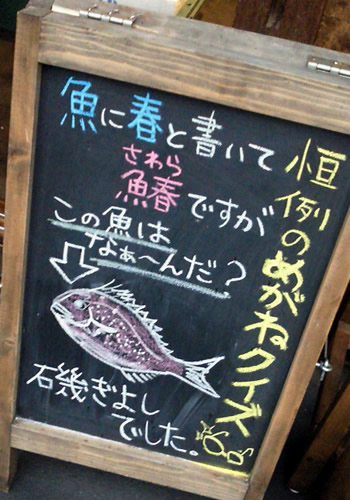 恒例のめがねクイズ
魚に春と書いて
さわら
鰆ですが
この魚は
なぁ〜んだ?
石幾ぎよし
でした。